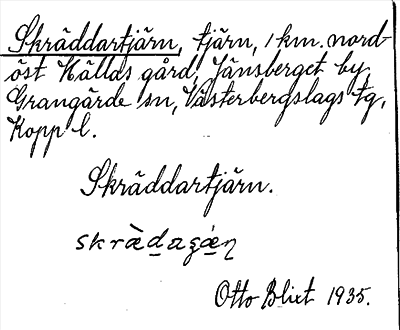 Skräddartjärn, tjärn, 1 km. nord-
öst Källas gård, Jänsberget by,
Grangärde sn, Västerbergslags tg,
Kopp l.
Skräddartjärn.
Otto Blixt 1935.